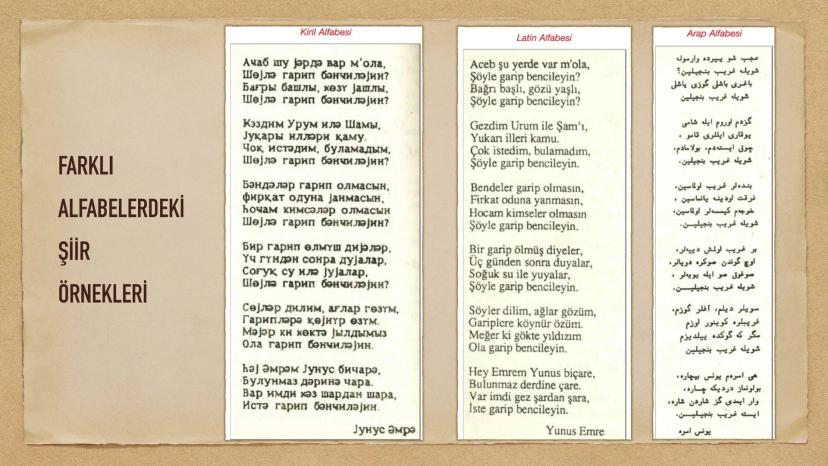 FARKLI
ALFABELERDEKİ
ŞİİR
ÖRNEKLERİ
Kiril Alfabesi
Ачаб шу јәрдә вар м'ола,
Шөјлә гарип бәнчиләјин?
Бағры башлы, көзү јашлы,
Шөјлә гарип бәнчиләјин?
Кәздим Урум илә Шамы,
Јукары илләри қаму.
Чок истәдим, буламадым,
Шөјлә гарип бәнчиләјин?
Бәндәләр гарип олмасын,
фирқат одуна јанмасын,
Һочам кимсәләр олмасын
Шөјлә гарип бәнчиләјин?
Бир гарип өлмүш дијәләр,
Үч гүндән сонра дујалар,
Соғук су илә јујалар,
Шөјлә гарип бәнчиләјин?
Сөјләр дилим, ағлар гөзүм,
Гарипләрә көјнүр өзүм.
Мәјәр ки көктә јылдымыз
Ола гарип бәнчиләјин.
Һәј Әмрәм Јунус бичарә,
Булунмаз дәринә чара.
Вар имди кәз шардан шара,
Истә гарип бәнчиләјин.
Јунус Әмрә
Latin Alfabesi
Aceb şu yerde var m'ola,
Şöyle garip bencileyin?
Bağrı başlı, gözü yaşlı,
Şöyle garip bencileyin?
Gezdim Urum ile Şam'ı,
Yukarı illeri kamu.
Çok istedim, bulamadım,
Şöyle garip bencileyin.
Bendeler garip olmasın,
Firkat oduna yanmasın,
Hocam kimseler olmasın
Şöyle garip bencileyin.
Bir garip ölmüş diyeler,
Üç günden sonra duyalar,
Soğuk su ile yuyalar,
Şöyle garip bencileyin.
Söyler dilim, ağlar gözüm,
Gariplere köynür özüm.
Meğer ki gökte yıldızım
Ola garip bencileyin.
Hey Emrem Yunus biçare,
Bulunmaz derdine çare.
Var imdi gez şardan şara,
İste garip bencileyin.
Yunus Emre
Arap Alfabesi
عجب شو ييرده وارموله
شويله غريب بنجيلين؟
باغرى باشلى گوزى ياشلى
شويله غريب بنجيلين
گزدم اوروم ايله شامى
يوقارى ايللرى قامو ،
چوق ايسته‌دم، بولامادم،
شويله غريب بنجيلين.
بنده‌لر غريب اولماسين،
فرقت اودينه يانماسين ،
خوجه‌م كيمسه‌لر اولماسين،
شويله غريب بنجيلين.
بر غريب اولمش دييه‌لر،
اوچ گوندن صوكره دويالر،
صوغوق صو ايله يويه‌لر ،
شويله غريب بنجيلين.
سويلر ديلم، آغلر گوزم،
غريبلره كوينور اوزم
مگر كه گوكده ييلديزم
شويله غريب بنجيلين
هى امره‌م يونس بيچاره،
بولونماز دردیکه چاره،
وار ايمدى گز شاردن شاره،
ايسته غريب بنجيلين.
يونس امره